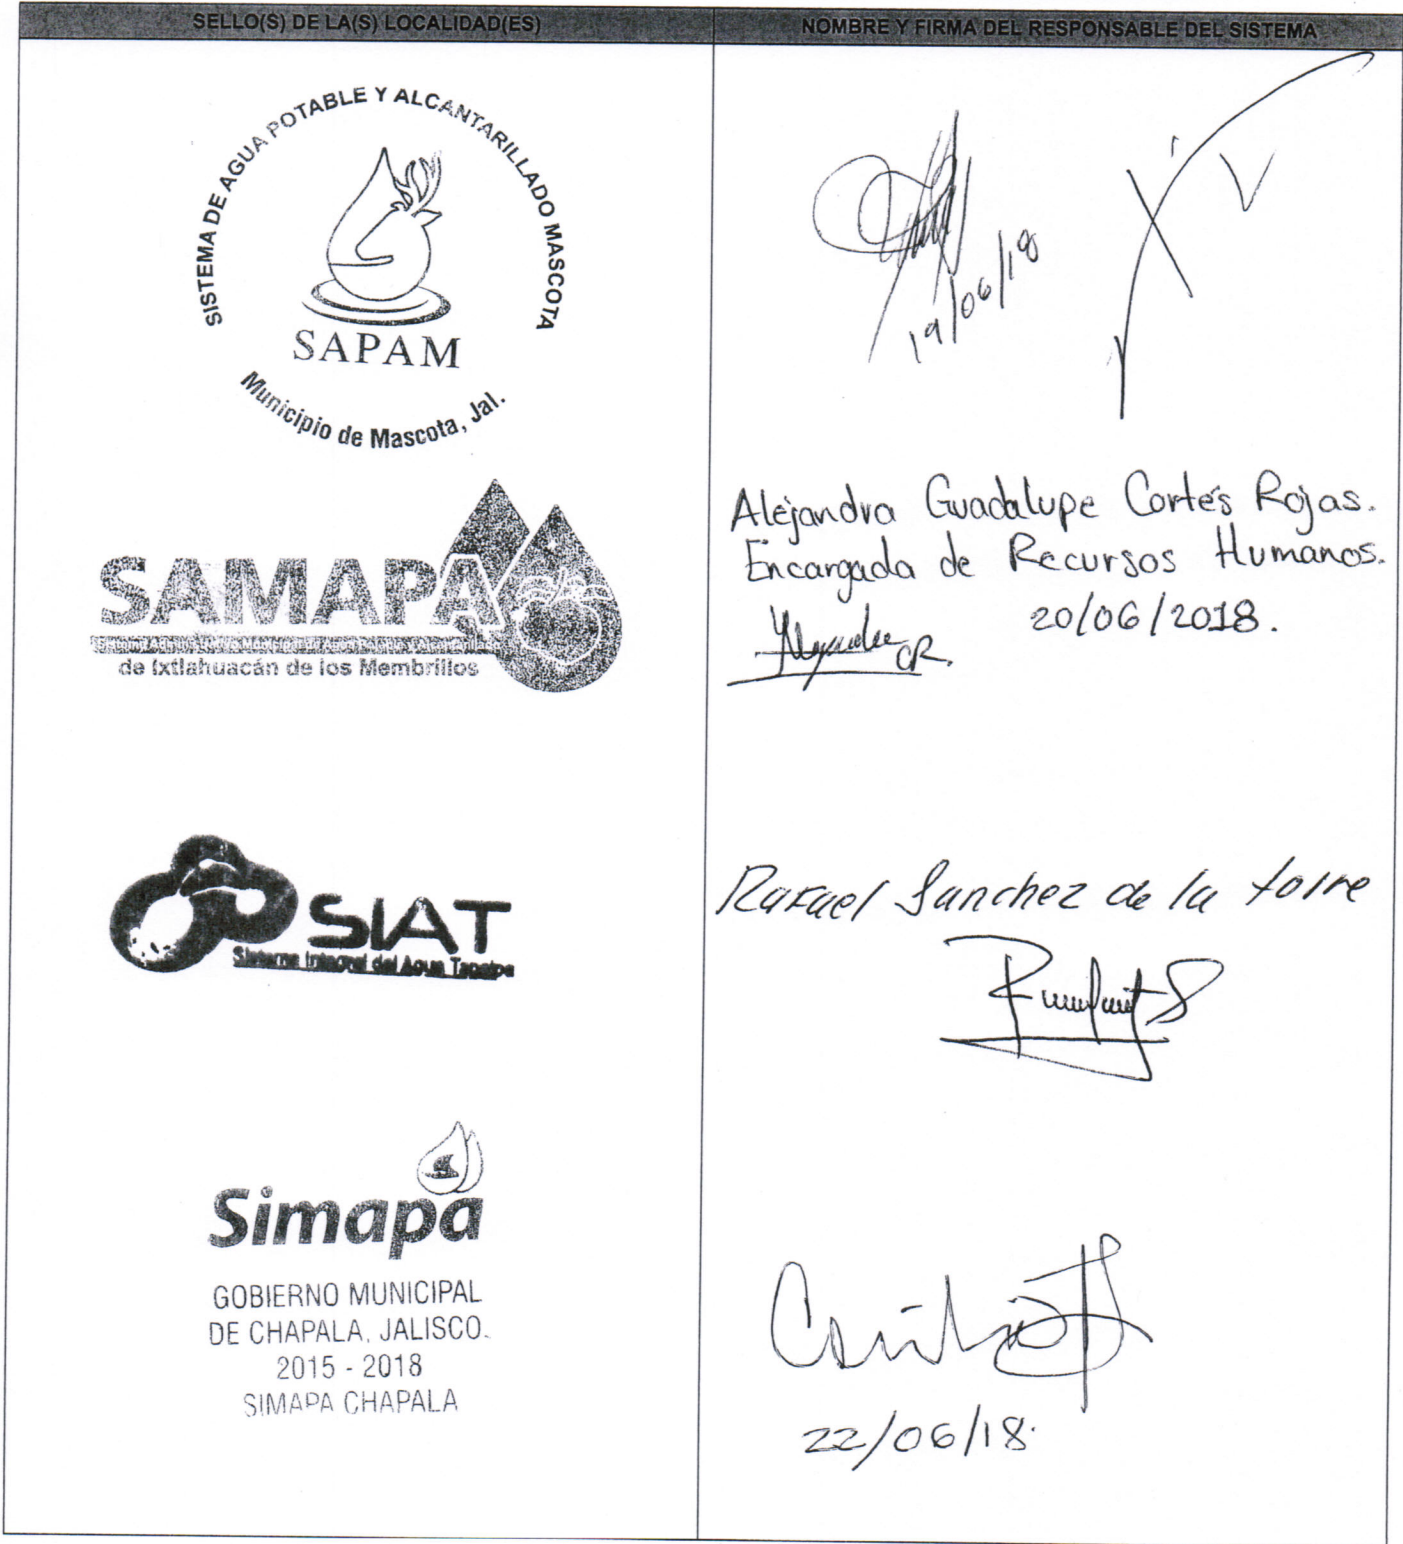 SELLO(S) DE LA(S) LOCALIDAD(ES)
NOMBRE Y FIRMA DEL RESPONSABLE DEL SISTEMA
SISTEMA DE AGUA POTABLE Y ALCANTARILLADO MASCOTA
SAPAM
Municipio de Mascota, Jal.
19/06/18
SAMAPA
de Ixtlahuacán de los Membrillos
Alejandra Guadalupe Cortés Rojas.
Encargada de Recursos Humanos.
20/06/2018.
CR.
SIAT
Sistema Integral del Agua Tapalpa
Rafael Sanchez de la torre
Simapa
GOBIERNO MUNICIPAL
DE CHAPALA, JALISCO.
2015 - 2018
SIMAPA CHAPALA
22/06/18.